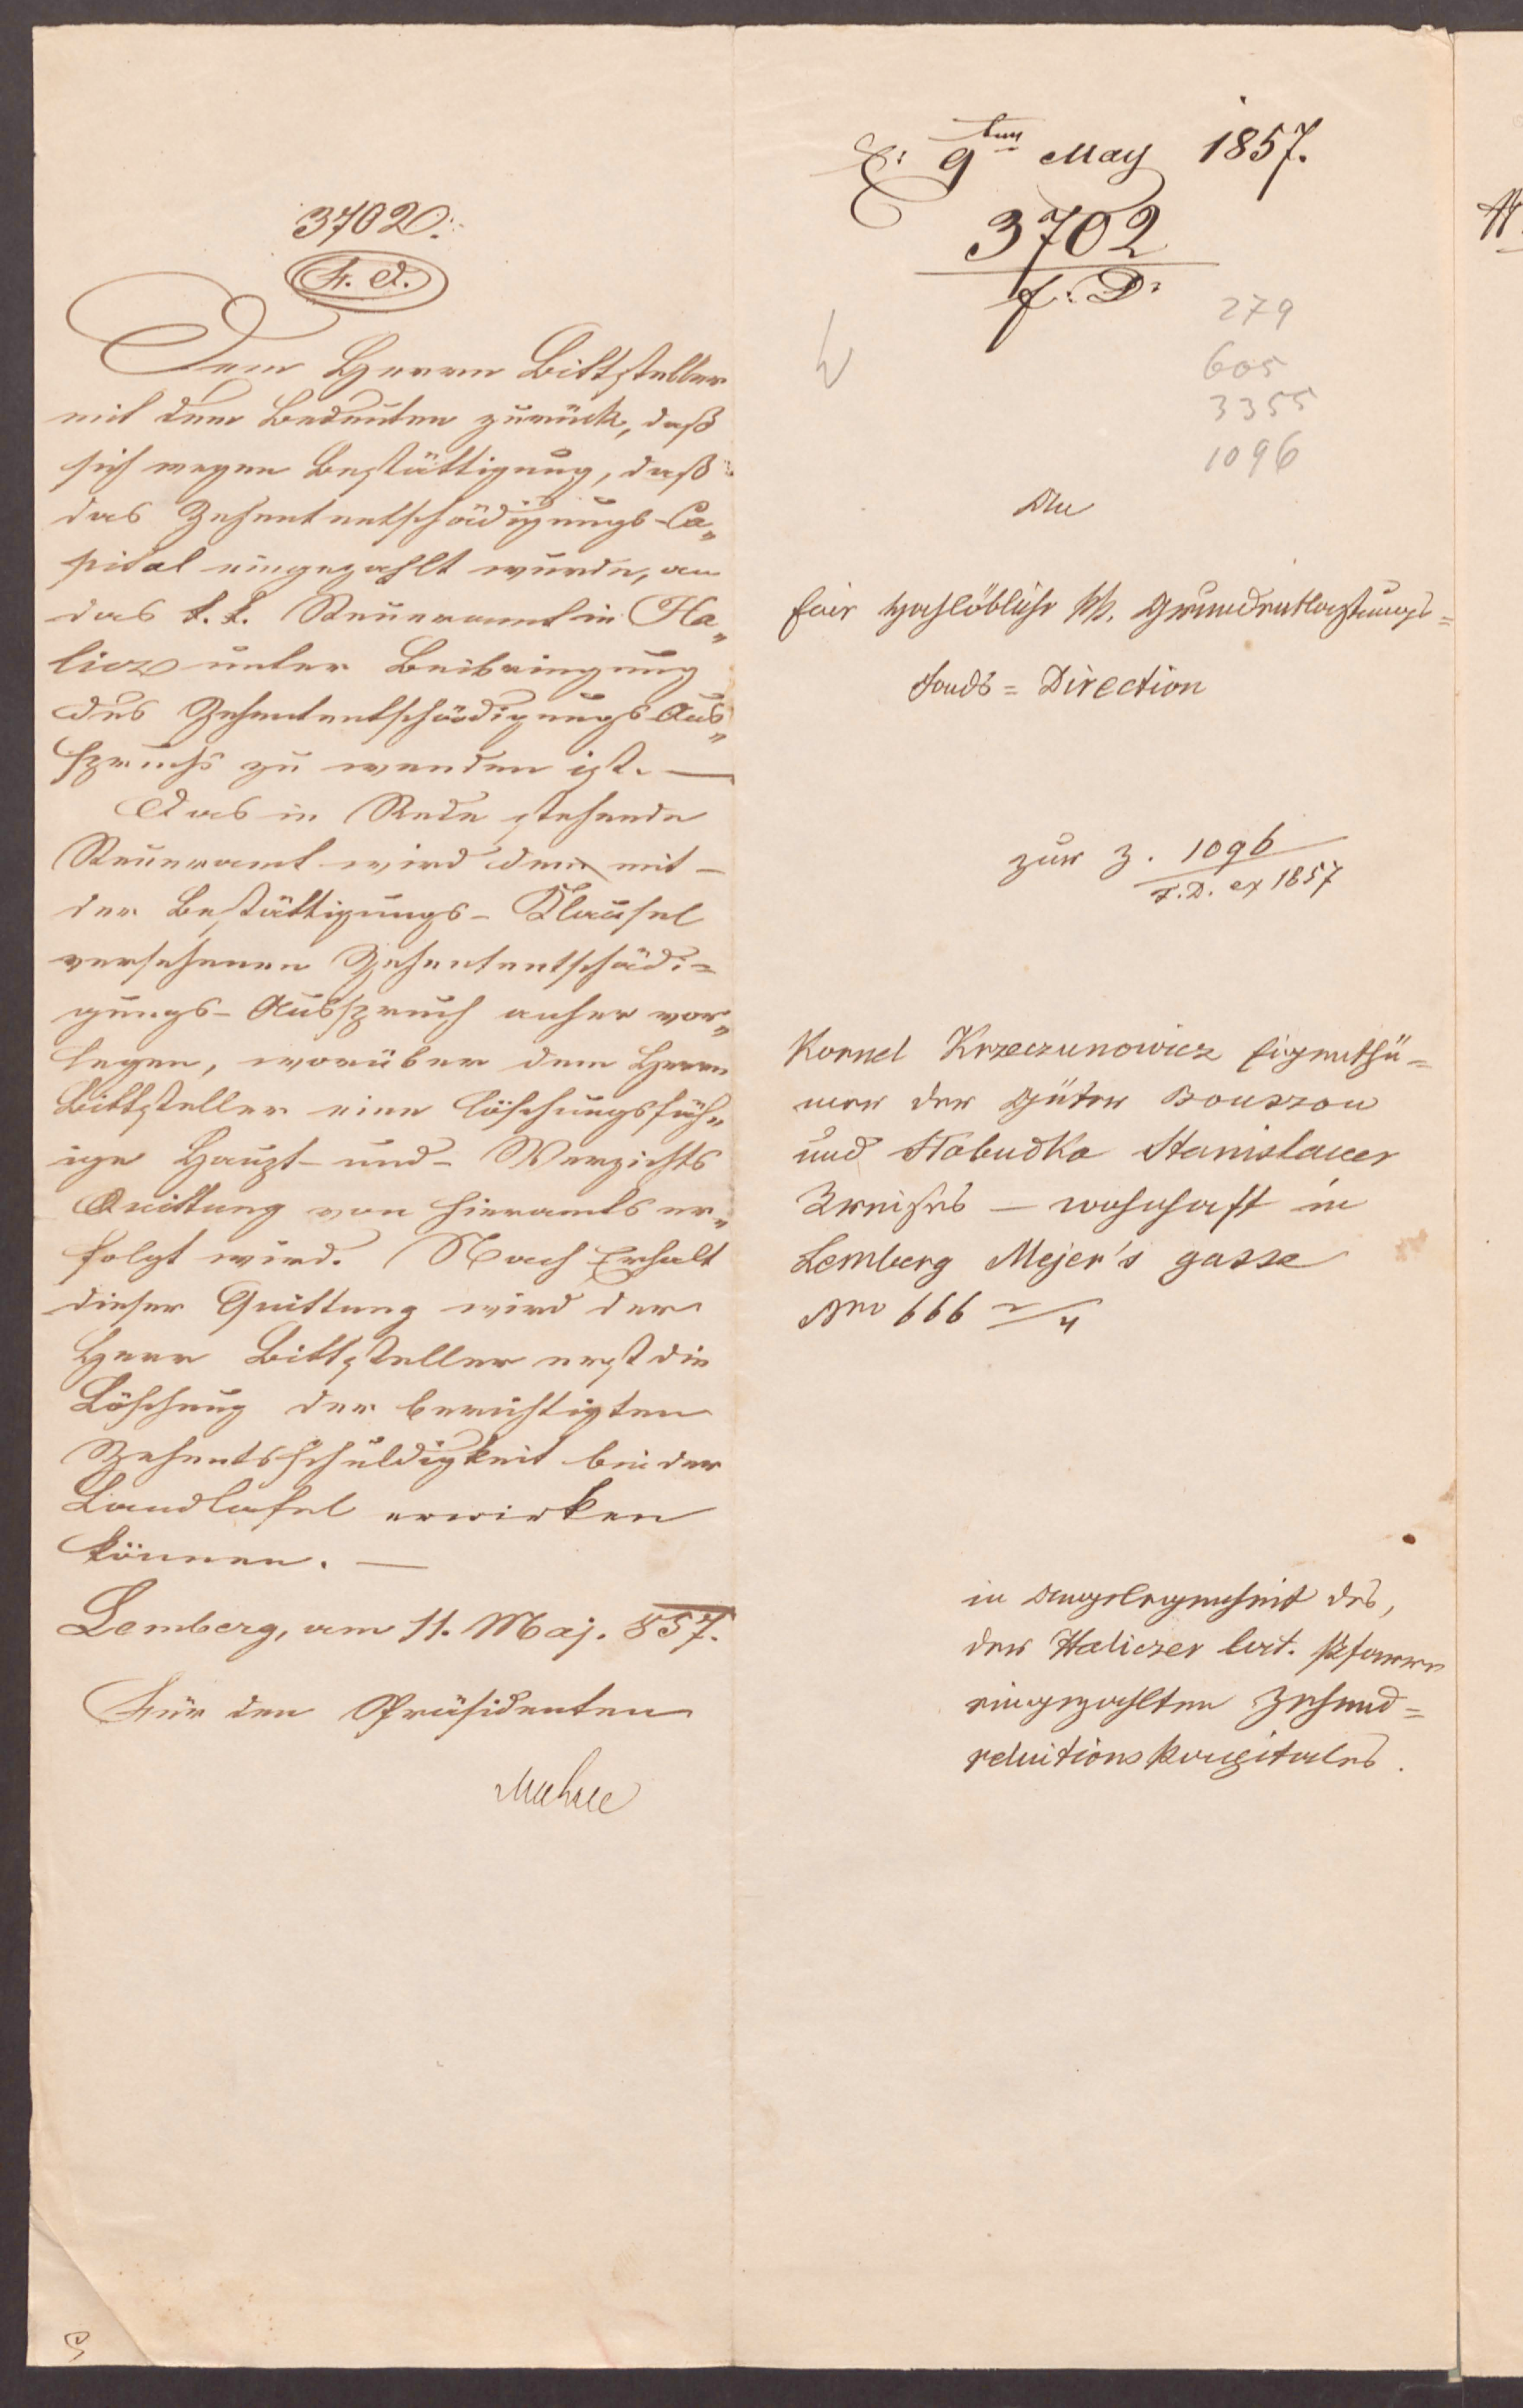 3702.
F. D.
Dem Herrn Bittsteller
mit dem Bedeuten zurück, daß
sich wegen Bestättigung, daß
das Zehententschädigungs-Ca„
pital eingezahlt wurde, an
das k. k. Steueramt in Ha„
licz unter Beibringung
des Zehententschädigungs Aus„
spruchs zu wenden ist. —
Das in Rede stehende
Steueramt wird den mit
der Bestättigungs-Klausel
versehenen Zehententschädi=
gungs-Ausspruch anher vor„
legen, worüber dem Herrn
Bittsteller eine löschungsfäh„
ige Haupt- und Verzichts
Quittung von hieramts er„
folgt wird. Nach Erhalt
dieser Quittung wird der
Herr Bittsteller erst die
Löschung der berichtigten
Zehentsschuldigkeit bei der
Landtafel erwirken
können. —
Lemberg, am 11. Maj. 857.
Für den Präsidenten
9ten May 1857.
3702
f: D:
279
605
3355
1096
An
Eine Hochlöbliche kk. Grundentlastungs=
Fonds = Direction
zur Z. 1096
F. D. ex 1857
Kornel Krzeczunowicz Eigenthü=
mer der Güter Bouszow
und Stobudka Stanislauer
Kreises — wohnhaft in
Lemberg Mejer's gasse
Nro 666 2/4
in Angelegenheit des,
der Haliczer lat. Pfarre
eingezahlten Zehend=
reluitions Kapitales.